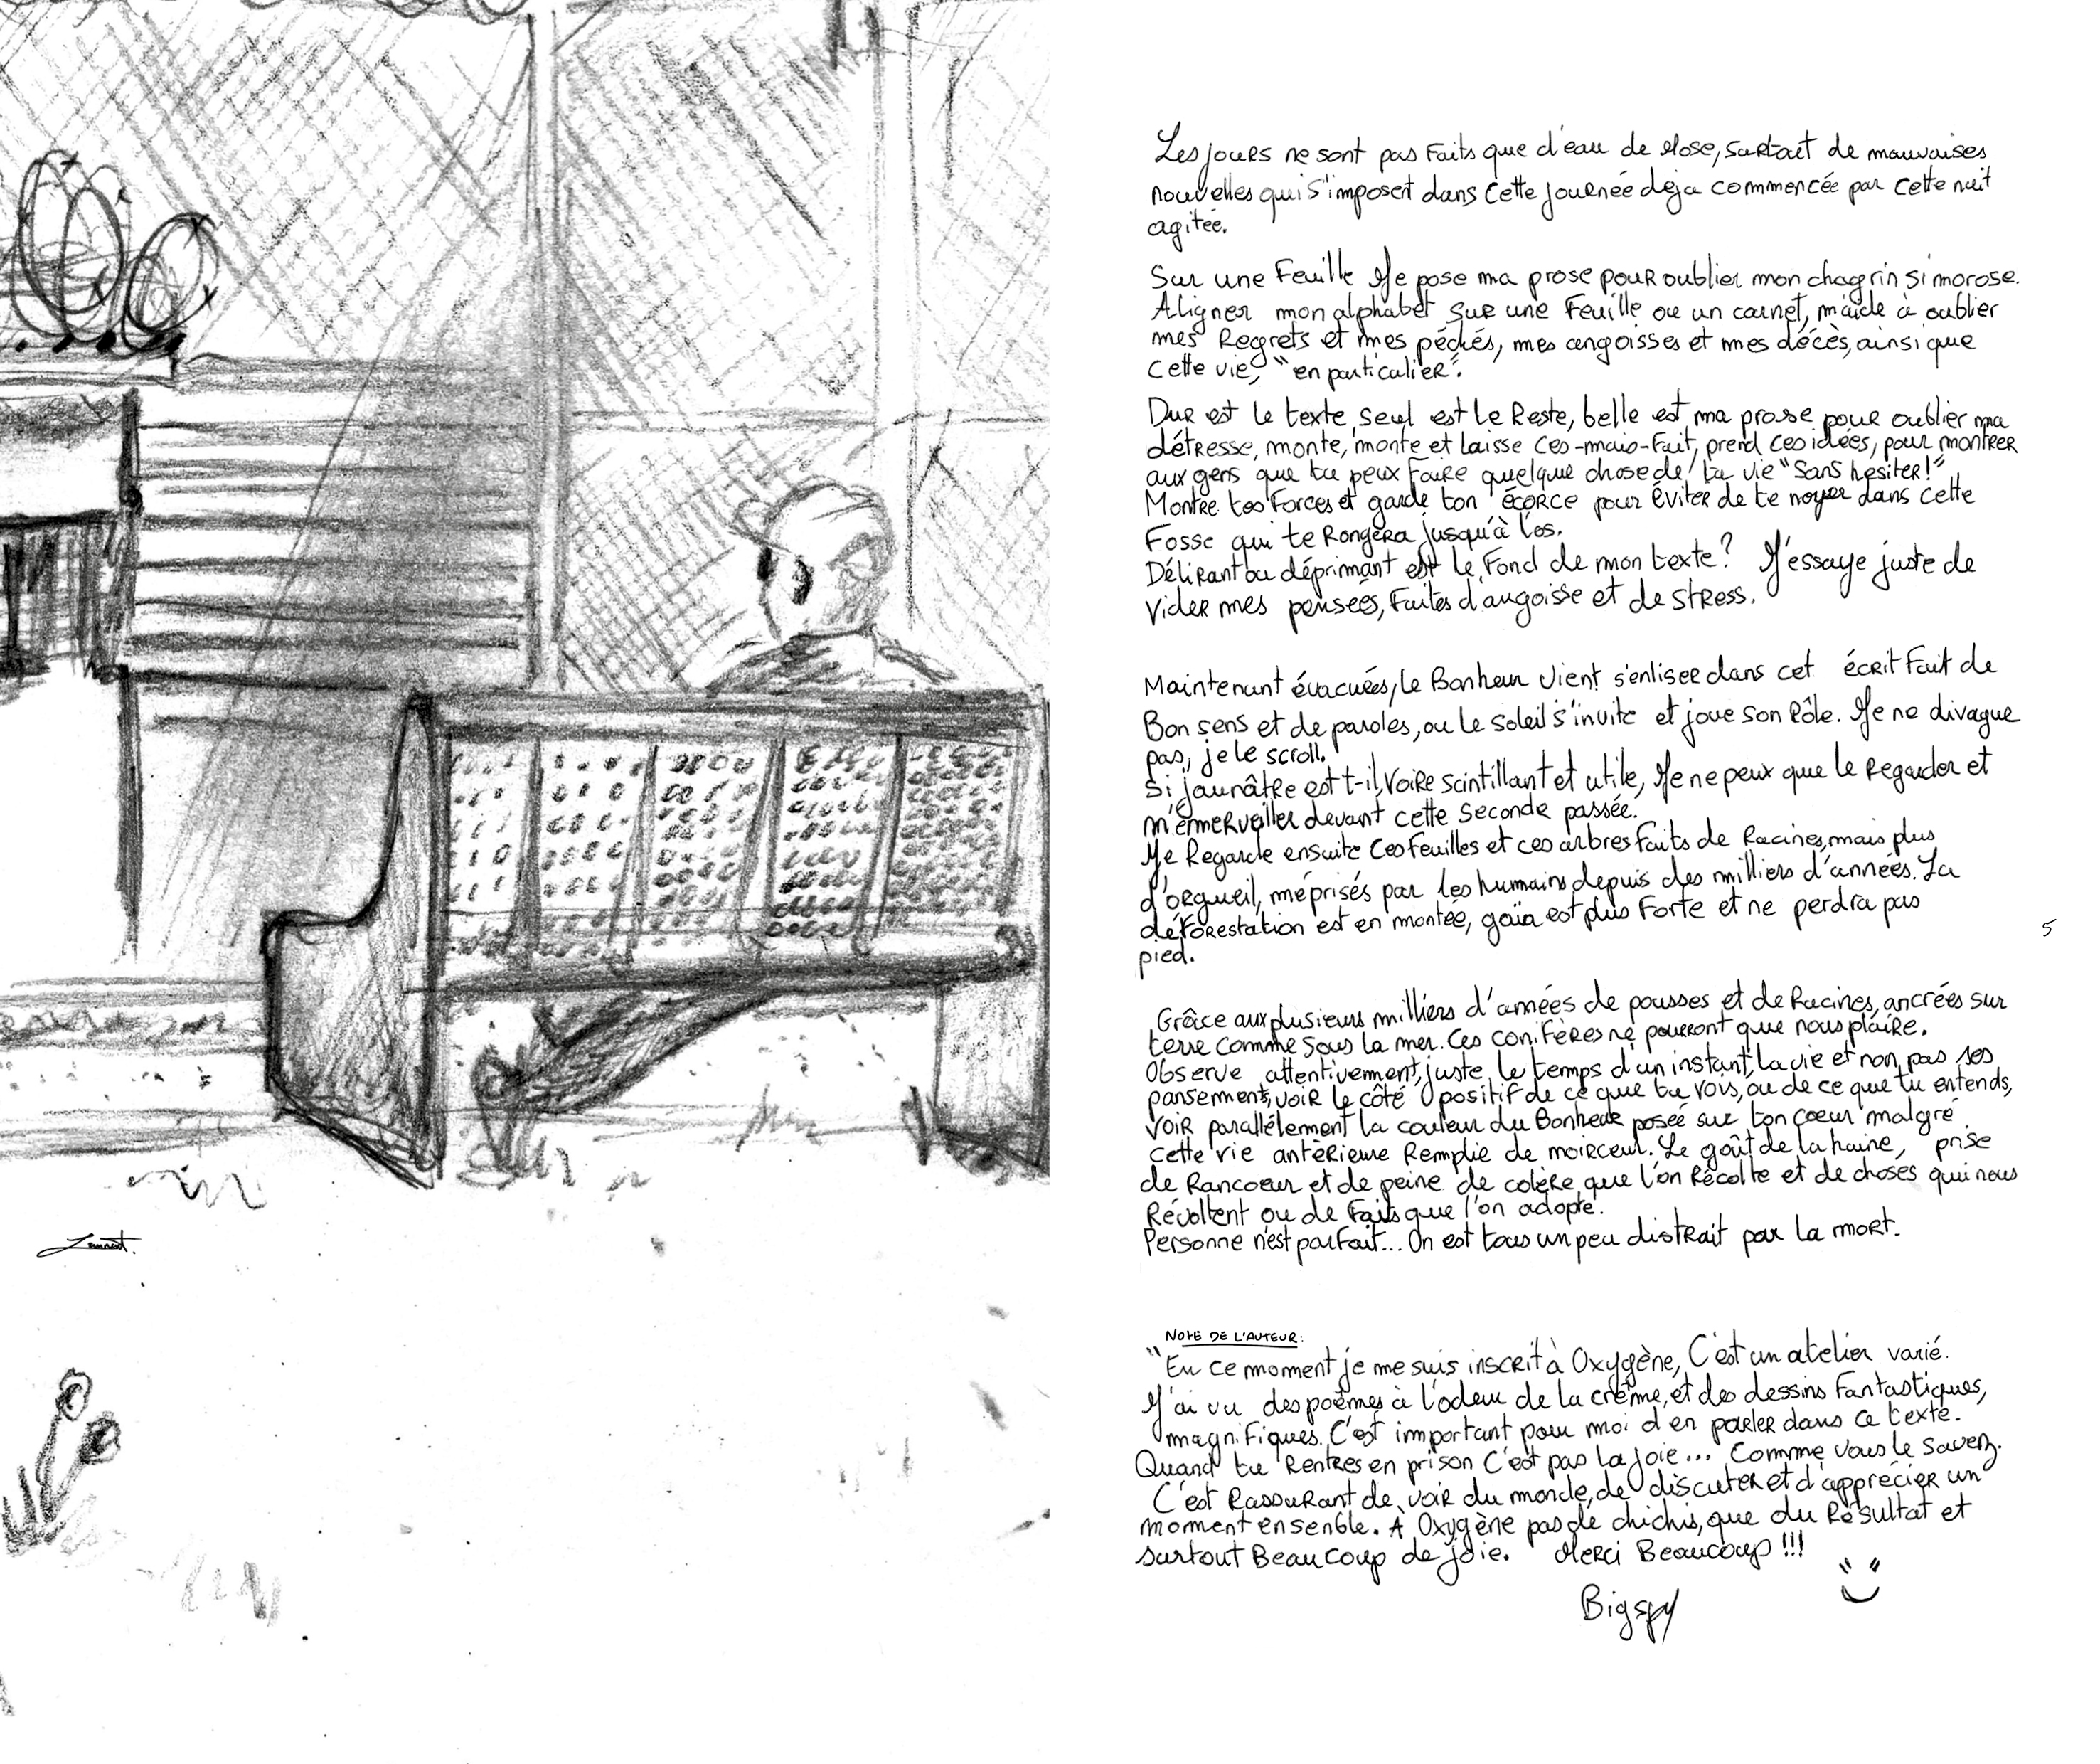 Laurent.
Les jours ne sont pas faits que d'eau de Rose, surtout de mauvaises
nouvelles qui s'imposent dans cette journée déja commencée par cette nuit
agitée.
Sur une Feuille Je pose ma prose pour oublier mon chagrin si morose.
Aligner mon alphabet sur une Feuille ou un carnet, m'aide à oublier
mes Regrets et mes péchés, mes angoisses et mes décès, ainsi que
cette vie, "en particulier".
Dur est le texte, seul est le Reste, belle est ma prose pour oublier ma
détresse, monte, monte et laisse ces-mais-Fait, prend ces idées, pour montrer
aux gens que tu peux Faire quelque chose de ta vie "Sans hesiter!"
Montre tes Forces et garde ton écorce pour éviter de te noyer dans cette
Fosse qui te Rongera jusqu'à l'os.
Délirant ou déprimant est le Fond de mon texte? J'essaye juste de
vider mes pensées, Faites d'angoisse et de stress.
Maintenant évacuées, le Bonheur vient s'enliser dans cet écrit Fait de
Bon sens et de paroles, ou le soleil s'invite et joue son Rôle. Je ne divague
pas, je le scroll.
Si jaunâtre est t-il, voire scintillant et utile, Je ne peux que le Regarder et
m'émerveiller devant cette seconde passée.
Je Regarde ensuite ces Feuilles et ces arbres Faits de Racines, mais plus
d'orgueil, méprisés par les humains depuis des milliers d'années. La
déforestation est en montée, gaïa est plus Forte et ne perdra pas
pied.
5
Grâce aux plusieurs milliers d'années de pousses et de Racines, ancrées sur
terre comme sous la mer. Ces coniFères ne pourront que nous plaire.
Observe attentivement, juste le temps d'un instant, la vie et non pas ses
pansements, voir le côté positif de ce que tu vois, ou de ce que tu entends,
voir parallèlement la couleur du Bonheur posée sur ton coeur malgré
cette vie antèrieure Remplie de moirceur. Le goût de la haine, prise
de Rancoeur et de peine de colère, que l'on Récolte et de choses qui nous
Révoltent ou de Faits que l'on adopte.
Personne n'est parfait... On est tous un peu distrait par la mort.
NOTE DE L'AUTEUR:
"En ce moment je me suis inscrit à Oxygène, C'est un atelier varié.
J'ai vu des poèmes à l'odeur de la crème, et des dessins Fantastiques,
magniFiques. C'est important pour moi d'en parler dans ce texte.
Quand tu Rentres en prison C'est pas la joie... Comme vous le savez.
C'est Rassurant de voir du monde, de discuter et d'apprécier un
moment ensenble. À Oxygène pas de chichis, que du Résultat et
surtout Beaucoup de joie. Merci Beaucoup !!!
Bigspy